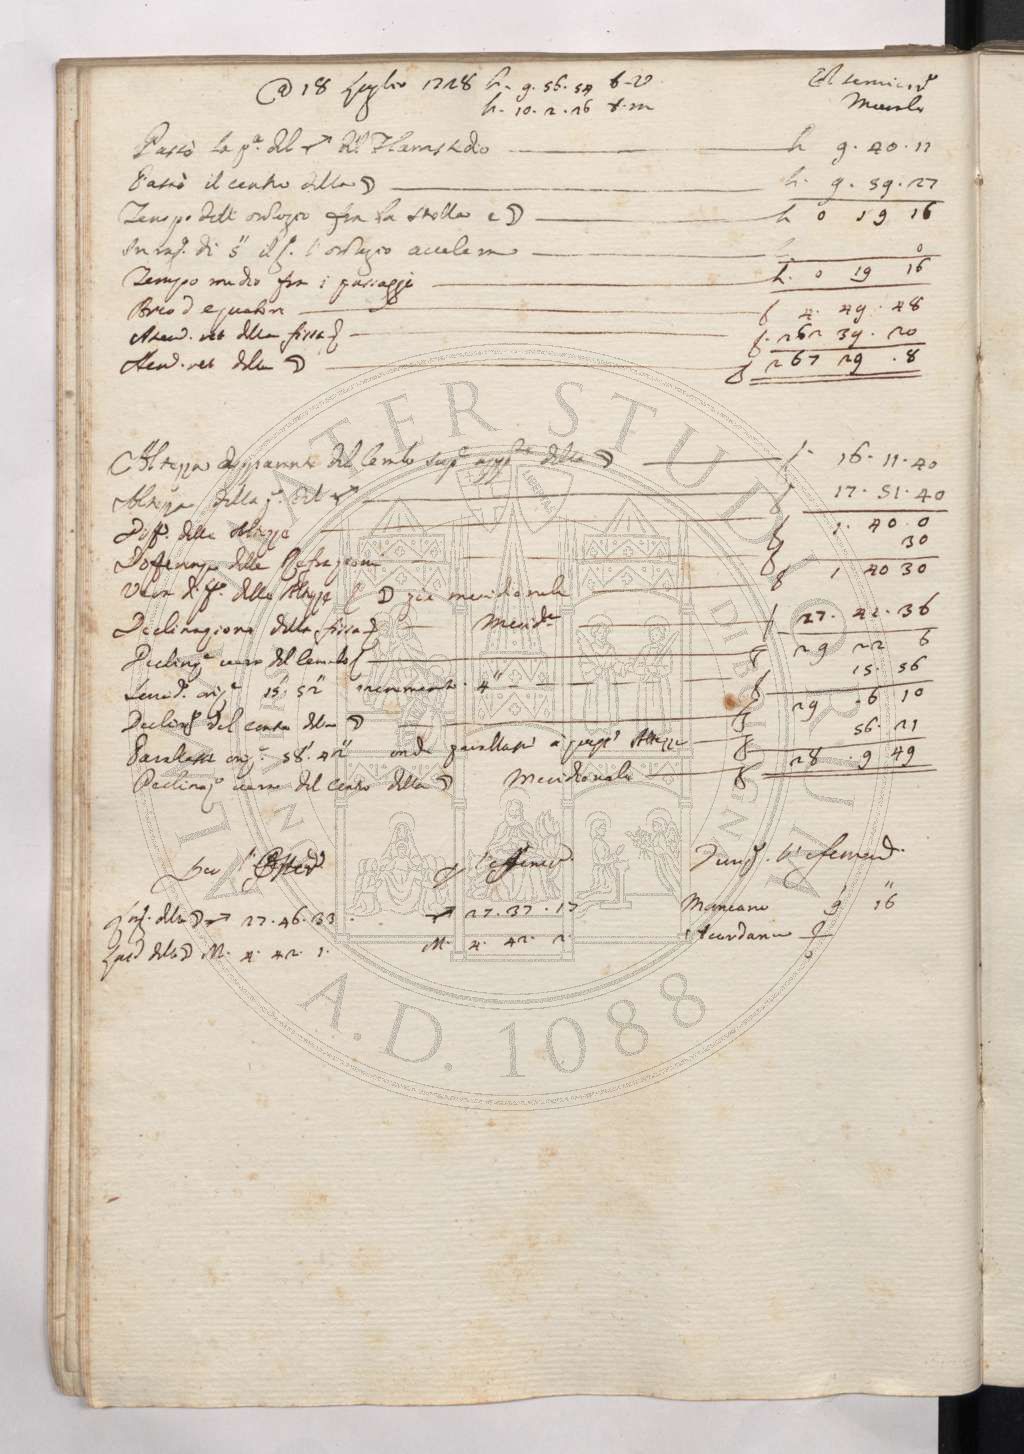 18 Luglio 1728 h. 9. 56. 54 t. v. Al semicir.
h. 10. 2. 26 t. m. Murale
Passò la p.ª del ♐ di Flamstedio h 9. 40. 11
Passò il centro della ☽ h. 9. 59. 27
Tempo dell' orologio fra la stella e ☽ h 0 19 16
In rag. di 5" il g. l'orologio accelera h. 0
Tempo medio fra i passaggi h. 0 19 16
Arco d'equatore g 4. 49. 48
Ascen. ret. della fissa g. 262 39. 20
Ascen. ret. della ☽ g 267 29. 8
Altezza apparente del lembo sup.e della ☽ g. 16. 11. 40
Altezza della p.ª del ♐ g 17. 51. 40
Diff.ª delle Altezze g 1. 40. 0
Differenza delle Refrazioni g 30
Vera diff.ª delle Altezze ☽ più meridionale g 1 40 30
Declinazione della fissa Merid.le g 27. 42. 36
Declinaz.e vera del lembo g 29 22 6
Semid. oriz.e 15' 52" incremento 4" g 15. 56
Declinaz. del centro della ☽ g 29. 6 10
Parallasse oriz.e 58'. 42" onde parallasse Altezza g 56. 21
Declinaz.e vera del centro della ☽ Meridionale g 28. 9 49
Per l'Osserv. l'Efemer. l'efemerid.
Long. della ☽ ♐ 27. 46. 33. ♐ 27. 37. 17 Mancano 9' 16"
Lat. della ☽ M. 4. 42. 1. M. 4. 42. 2.
ALMA MATER STUDIORUM
A.D. 1088